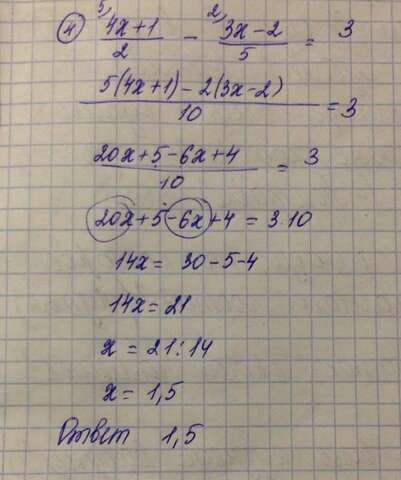 ④ 5) (4x+1)/2 - 2) (3x-2)/5 = 3
(5(4x+1)-2(3x-2))/10 = 3
(20x+5-6x+4)/10 = 3
20x+5-6x+4 = 3·10
14x = 30-5-4
14x = 21
x = 21:14
x = 1,5
Ответ 1,5